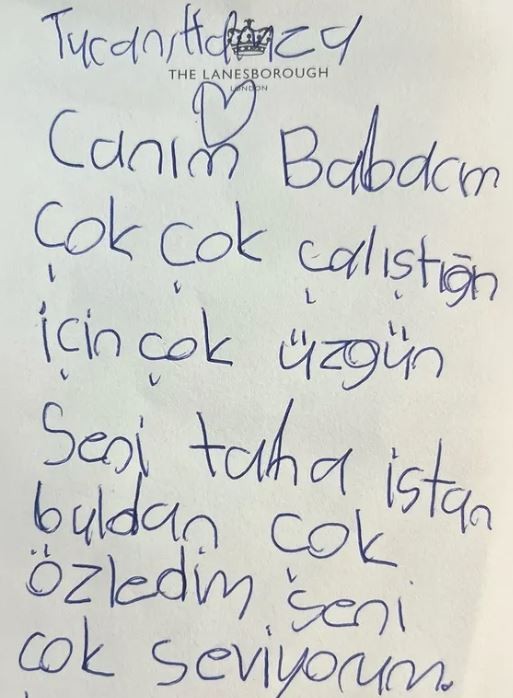 THE LANESBOROUGH
LONDON
Canım Babacım
çok çok çalıştığın
için çok üzgün
Seni taha istan
buldan çok
özledim seni
çok seviyorum.